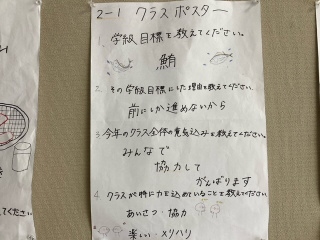 2-1 クラスポスター
1. 学級目標を教えてください。
鮪
2. その学級目標にした理由を教えてください。
前にしか進めないから
3. 今年のクラス全体の意気込みを教えてください。
みんなで
協力して
がんばります
4. クラスが特に力を込めていることを教えてください。
あいさつ・協力
楽しい・メリハリ
てください